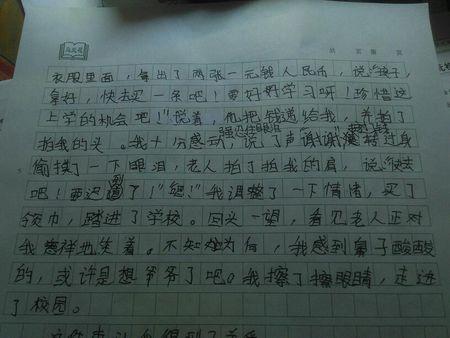 衣服里面，拿出了两张一元钱人民币，说："孩子，
拿好，快去买一条吧！要好好学习呀！珍惜这
上学的机会吧！"说着，他把钱递给我，并拍了
拍我的头。我十分感动，说了声谢谢，转过身
强忍住眼泪
偷擦了一下眼泪，老人拍了拍我的肩，说："快去
吧！要迟到了！""嗯！"我调整了一下情绪，买了
领巾，踏进了学校。回头一望，看见老人正对
我慈祥地笑着。不知为何，我感到鼻子酸酸
的，或许是想爷爷了吧。我擦了擦眼睛，走进
了校园。